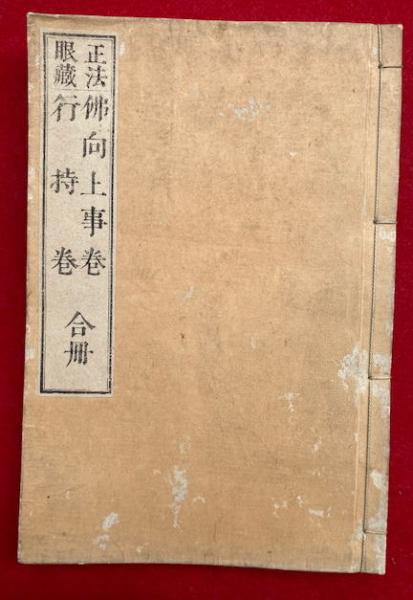 正法眼藏
佛向上事卷
行持卷
合冊